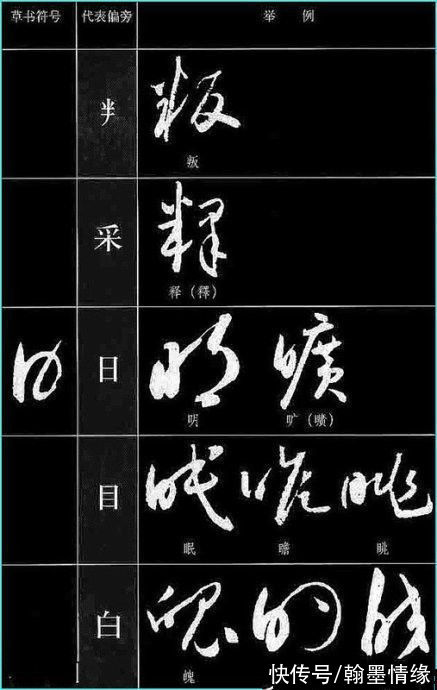 草书符号 代表偏旁 举 例
叛
釆
释（釋）
日
明 旷（曠）
目
眠 瞻 眺
白
魄
快传号/翰墨情缘